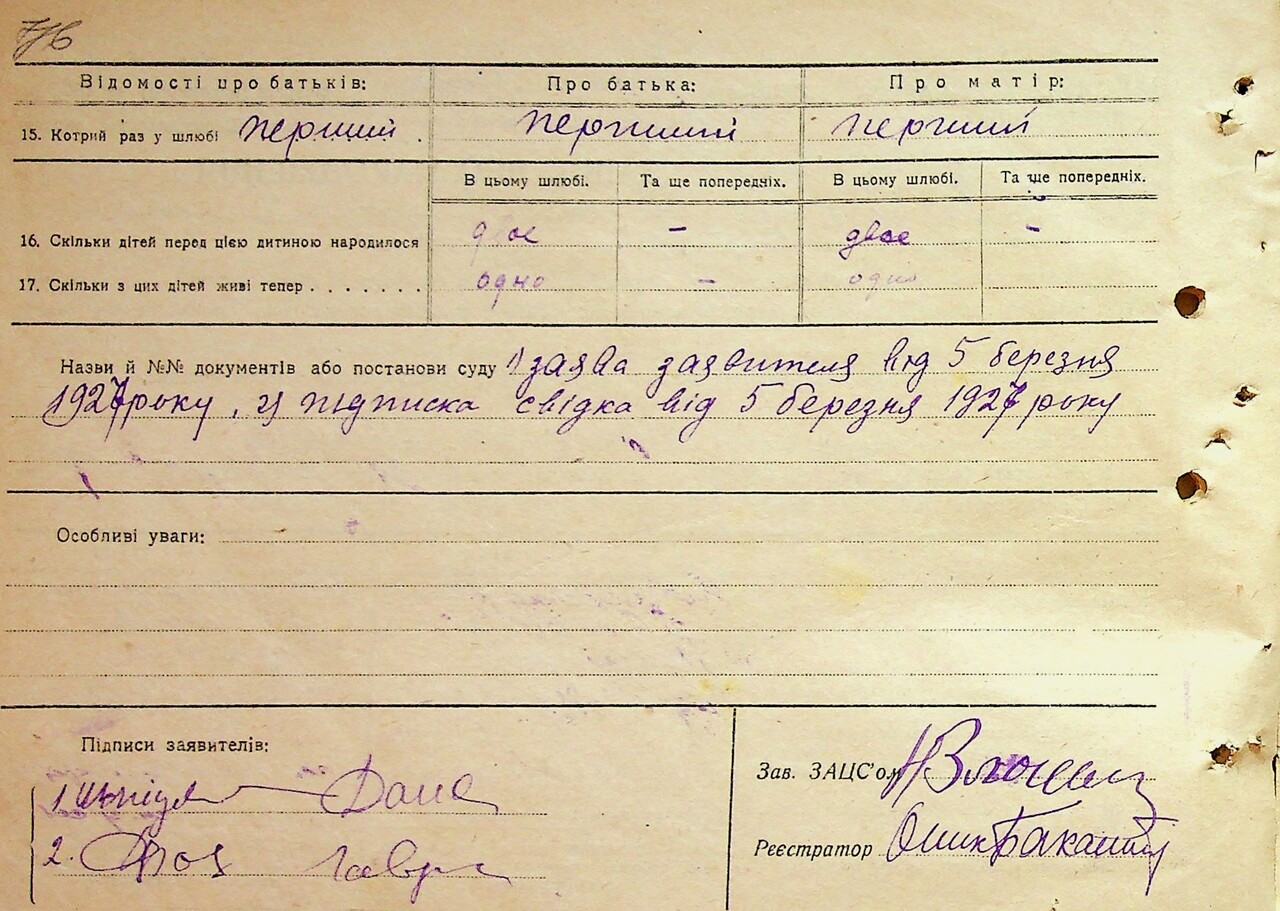 Відомості про батьків: Про батька: Про матір:
15. Котрий раз у шлюбі перший перший перший
В цьому шлюбі. Та ще попередніх. В цьому шлюбі. Та ще попередніх.
16. Скільки дітей перед цією дитиною народилося двое – двое –
17. Скільки з цих дітей живі тепер . . . . . . . одно – одно
Назви й №№ документів або постанови суду 1) заява заявителя від 5 березня
1927 року, 2) підписка свідка від 5 березня 1927 року
Особливі уваги:
Підписи заявителів:
1
2.
Зав. ЗАЦС'ом
Реєстратор